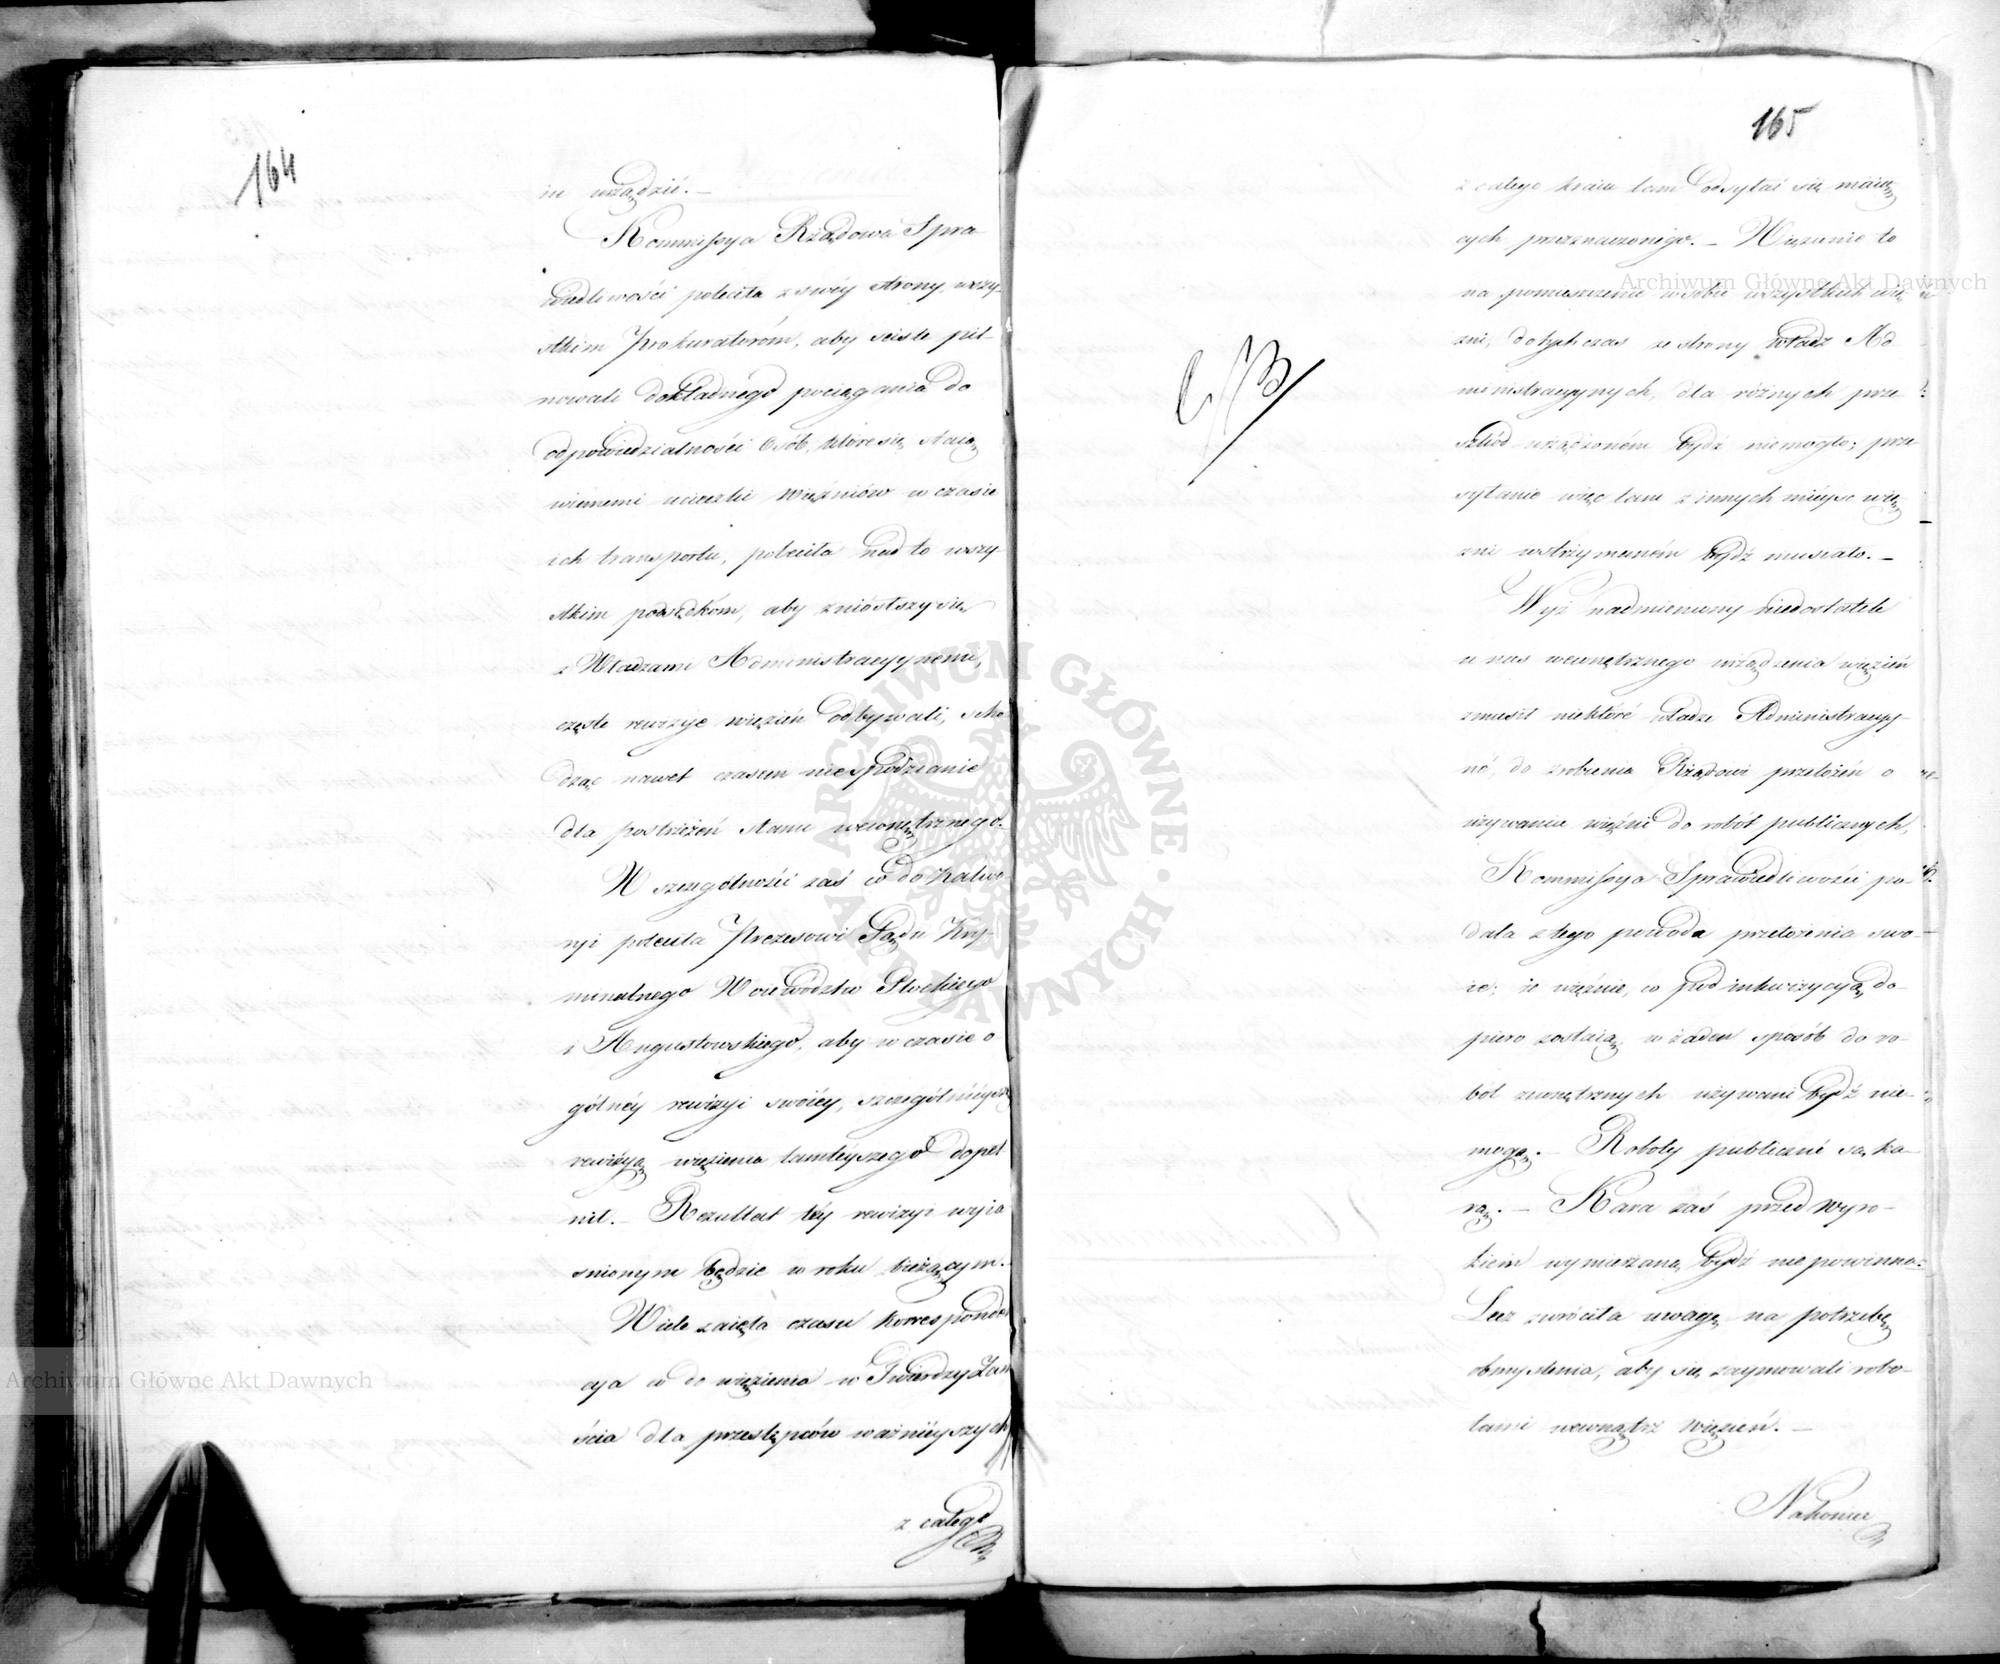 164
in urządzić. —
Kommissya Rządowa Spra
wiedliwości poleciła z swéy strony wszy-
stkim Prokuratoróm, aby ściśle pil-
nowali dokładnego pociągania do
odpowiedzialności osób, które się staią
winnemi ucieczki więźniów w czasie
ich transportu, poleciła nadto wszy-
stkim podsędkóm, aby zniósłszy się
z Władzami Administracyynemi,
częste rewizye więzień odbywali, scho
dząc nawet czasem niespodzianie
dla postrzeżeń stanu wewnętrznego.
W szczególności zaś co do Kalwa-
ryi poleciła Prezesowi Sądu Kry-
minalnego Województw Płockiego
i Augustowskiego, aby w czasie o
gólnéy rewizyi swoiéy, szczególniéysz
rewizyą więzienia tamtéyszego dopeł
nił. — Rezultat téy rewizyi wyia
śnionym będzie w roku bieżącym. —
Wiele zaięła czasu korresponden
cya co do więzienia w Twierdzy Zam
ościa dla przestępców ważniéyszych
z całego
165
z całego kraiu tam odsyłać się maią
cych przeznaczonego. — Więzienie to
na pomieszczenie w sobie wszystkich wię
źni, dotychczas ze strony Władz Ad
ministracyynych, dla różnych prze
szkód urządzoném bydź niemogło; prze
syłanie więc tam z innych mieysc wię
źni wstrzymaném bydź musiało. —
Wyż nadmieniony niedostatek
u nas wewnętrznego urządzenia więzień
zmusił niektóré władze Administracyy-
né, do zrobienia Rządowi przełożeń o
używaniu więźni do robót publicznych,
Kommissya Sprawiedliwości po-
dała z tego powodu przełożenia swo-
ie: że więźnie, co pod inkwizycyą do-
piero zostaią, w żaden sposób do ro-
bót zewnętrznych używani bydź nie-
mogą. — Roboty publiczné są ka-
rą. — Kara zaś przed wyro-
kiem wymierzaną bydź niepowinna:
Lecz zwróciła uwagę na potrzebę
obmyślenia, aby się zaymowali robo-
tami wewnątrz więzień. —
Nakoniec
Archiwum Główne Akt Dawnych
Archiwum Główne Akt Dawnych
ARCHIWUM GŁÓWNE · AKT DAWNYCH ·